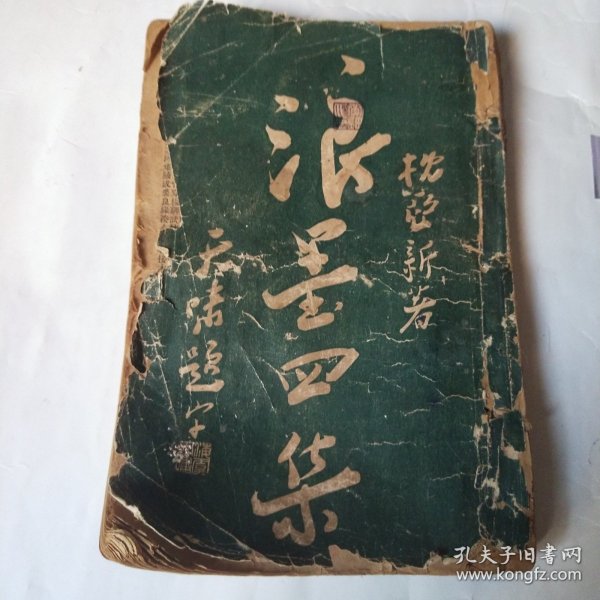 枕亞新著
浪墨四集
天嘯題字
孔夫子旧书网
www.kongfz.com